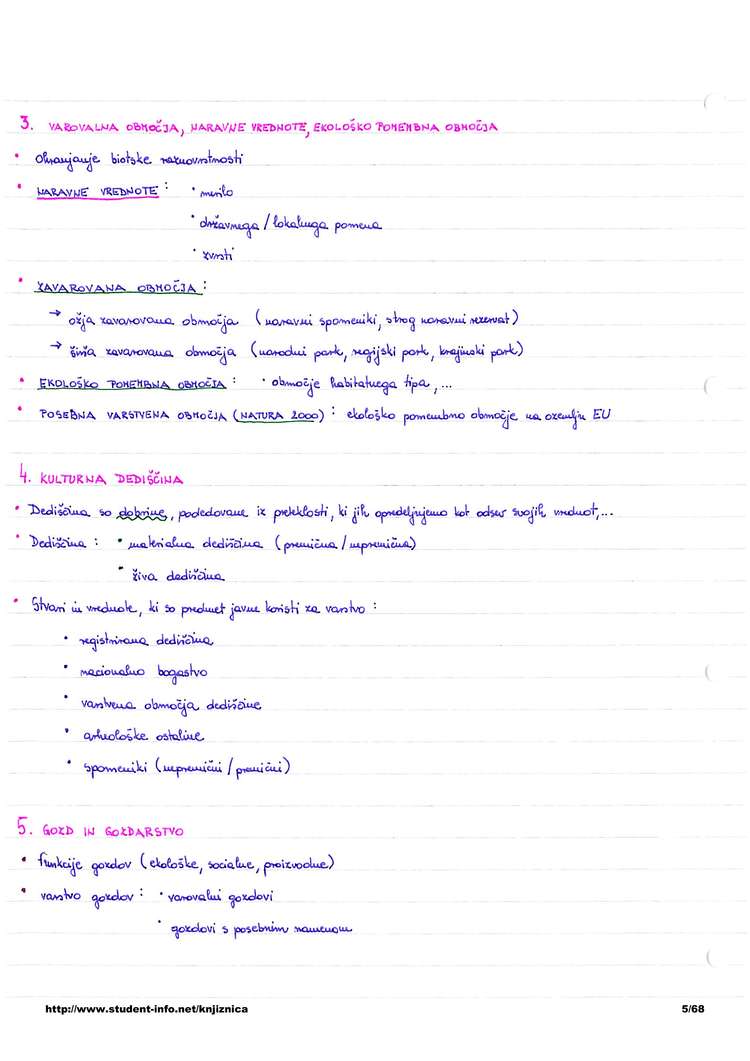 3. VAROVALNA OBMOČJA, NARAVNE VREDNOTE, EKOLOŠKO POMEMBNA OBMOČJA
• Ohranjanje biotske raznovrstnosti
• NARAVNE VREDNOTE : • merilo
• državnega / lokalnega pomena
• zvrsti
• ZAVAROVANA OBMOČJA :
→ ožja zavarovana območja (naravni spomeniki, strog naravni rezervat)
→ širša zavarovana območja (narodni park, regijski park, krajinski park)
• EKOLOŠKO POMEMBNA OBMOČJA : • območje habitatnega tipa, ...
• POSEBNA VARSTVENA OBMOČJA (NATURA 2000) : ekološko pomembno območje na ozemlju EU
4. KULTURNA DEDIŠČINA
• Dediščina so dobrine, podedovane iz preteklosti, ki jih opredeljujemo kot odsev svojih vrednot,...
• Dediščina : • materialna dediščina (premična / nepremična)
• živa dediščina
• Stvari in vrednote, ki so predmet javne koristi za varstvo :
• registrirana dediščina
• nacionalno bogastvo
• varstvena območja dediščine
• arheološke ostaline
• spomeniki (nepremični / premični)
5. GOZD IN GOZDARSTVO
• funkcije gozdov (ekološke, socialne, proizvodne)
• varstvo gozdov : • varovalni gozdovi
• gozdovi s posebnim namenom
http://www.student-info.net/knjiznica 5/68